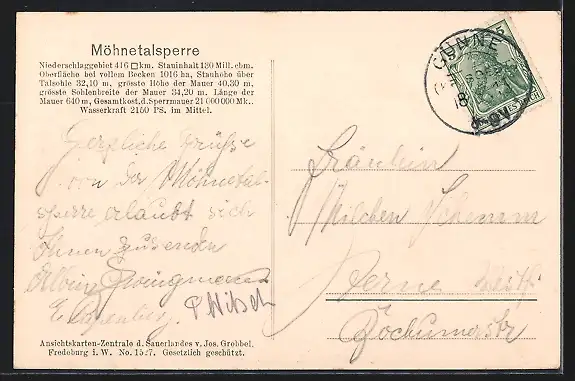 Möhnetalsperre
Niederschlaggebiet 416 □km. Stauinhalt 130 Mill. cbm.
Oberfläche bei vollem Becken 1016 ha, Stauhöhe über
Talsohle 32,10 m, grösste Höhe der Mauer 40,30 m,
grösste Sohlenbreite der Mauer 34,20 m. Länge der
Mauer 640 m, Gesamtkost. d. Sperrmauer 21 000 000 Mk..
Wasserkraft 2150 PS. im Mittel.
GÜNNE
Herzliche Grüsse
von der Möhnetal-
sperre erlaubt sich
Ihnen zusenden
Albin Zwingmann
P Hitsch
Fräulein
Herne Westf.
Bochumerstr
Ansichtskarten-Zentrale d. Sauerlandes v. Jos. Grobbel.
Fredeburg i. W. No. 1527. Gesetzlich geschützt.